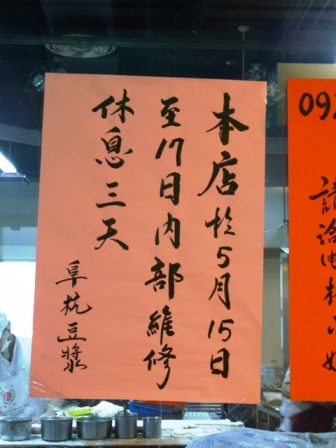 本店於5月15日
至17日內部維修
休息三天
阜杭豆漿
092